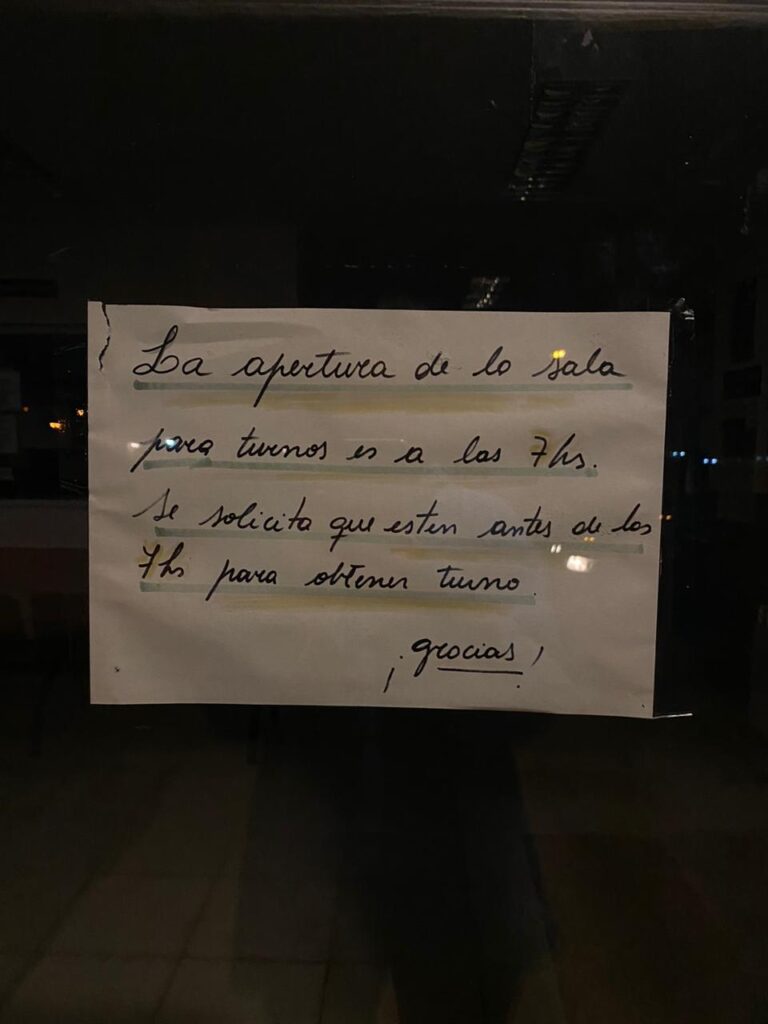 La apertura de la sala
para turnos es a las 7hs.
Se solicita que esten antes de las
7hs para obtener turno.
¡gracias!